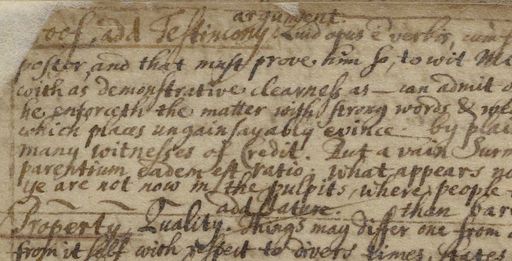 argument.
roof, add Testimony Quid opus e verbis, cum
postor, and that must prove him so, to wit
with as demonstrative clearness as — can admit
he enforceth the matter with strong words &
which places ungainsayably evince — by
many witnesses of Credit. But a vain
parentium eadem est ratio, what appears
ye are not now in the pulpits, where people
add Nature. than
Property, Quality. Things may differ one from
from it self with respect to divers times,